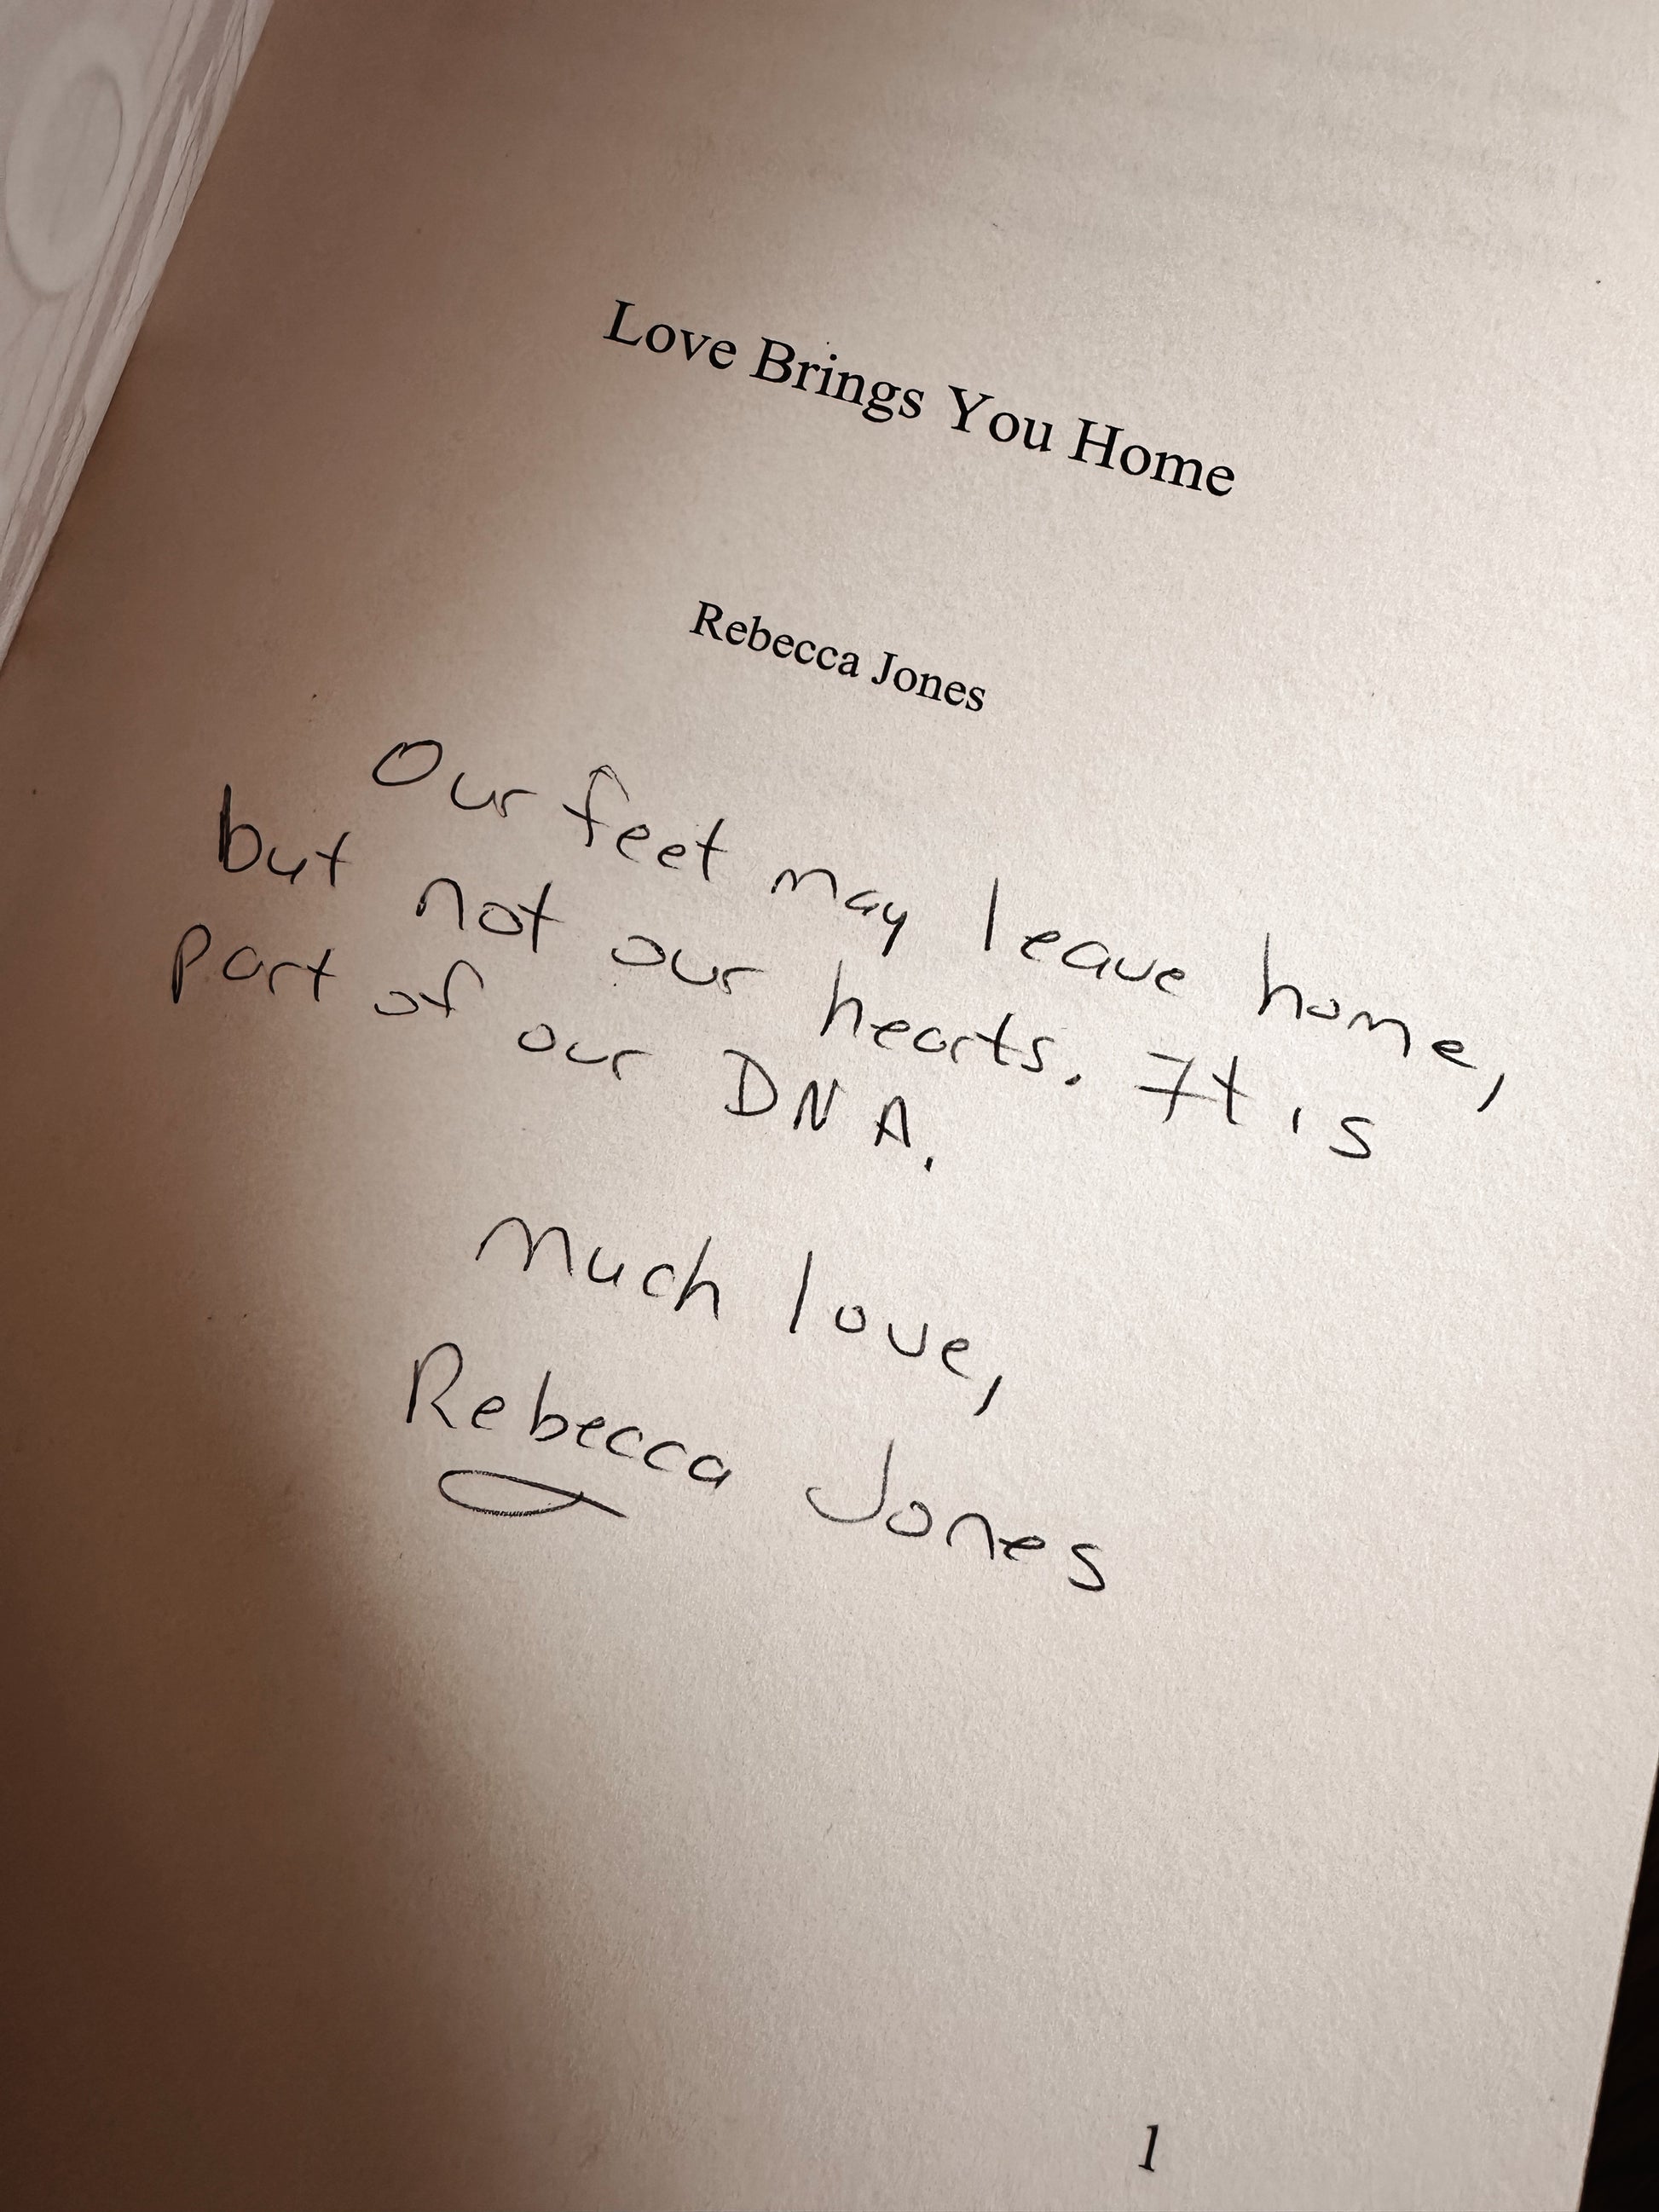 Love Brings You Home
Rebecca Jones
Our feet may leave home,
but not our hearts. It is
part of our DNA.
Much love,
Rebecca Jones
1